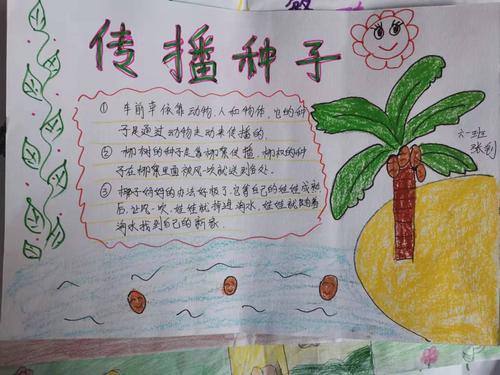 传播种子
① 车前草依靠动物、人和物体,它的种
子是通过动物走动来传播的。
② 柳树的种子是靠柳絮传播,柳树的种
子在柳絮里面被风一吹就送到各处。
③ 椰子妈妈的办法好极了,它等自己的娃娃成熟
后,让风一吹,娃娃就掉进海水,娃娃就随着
海水找到自己的新家。
六一班
张